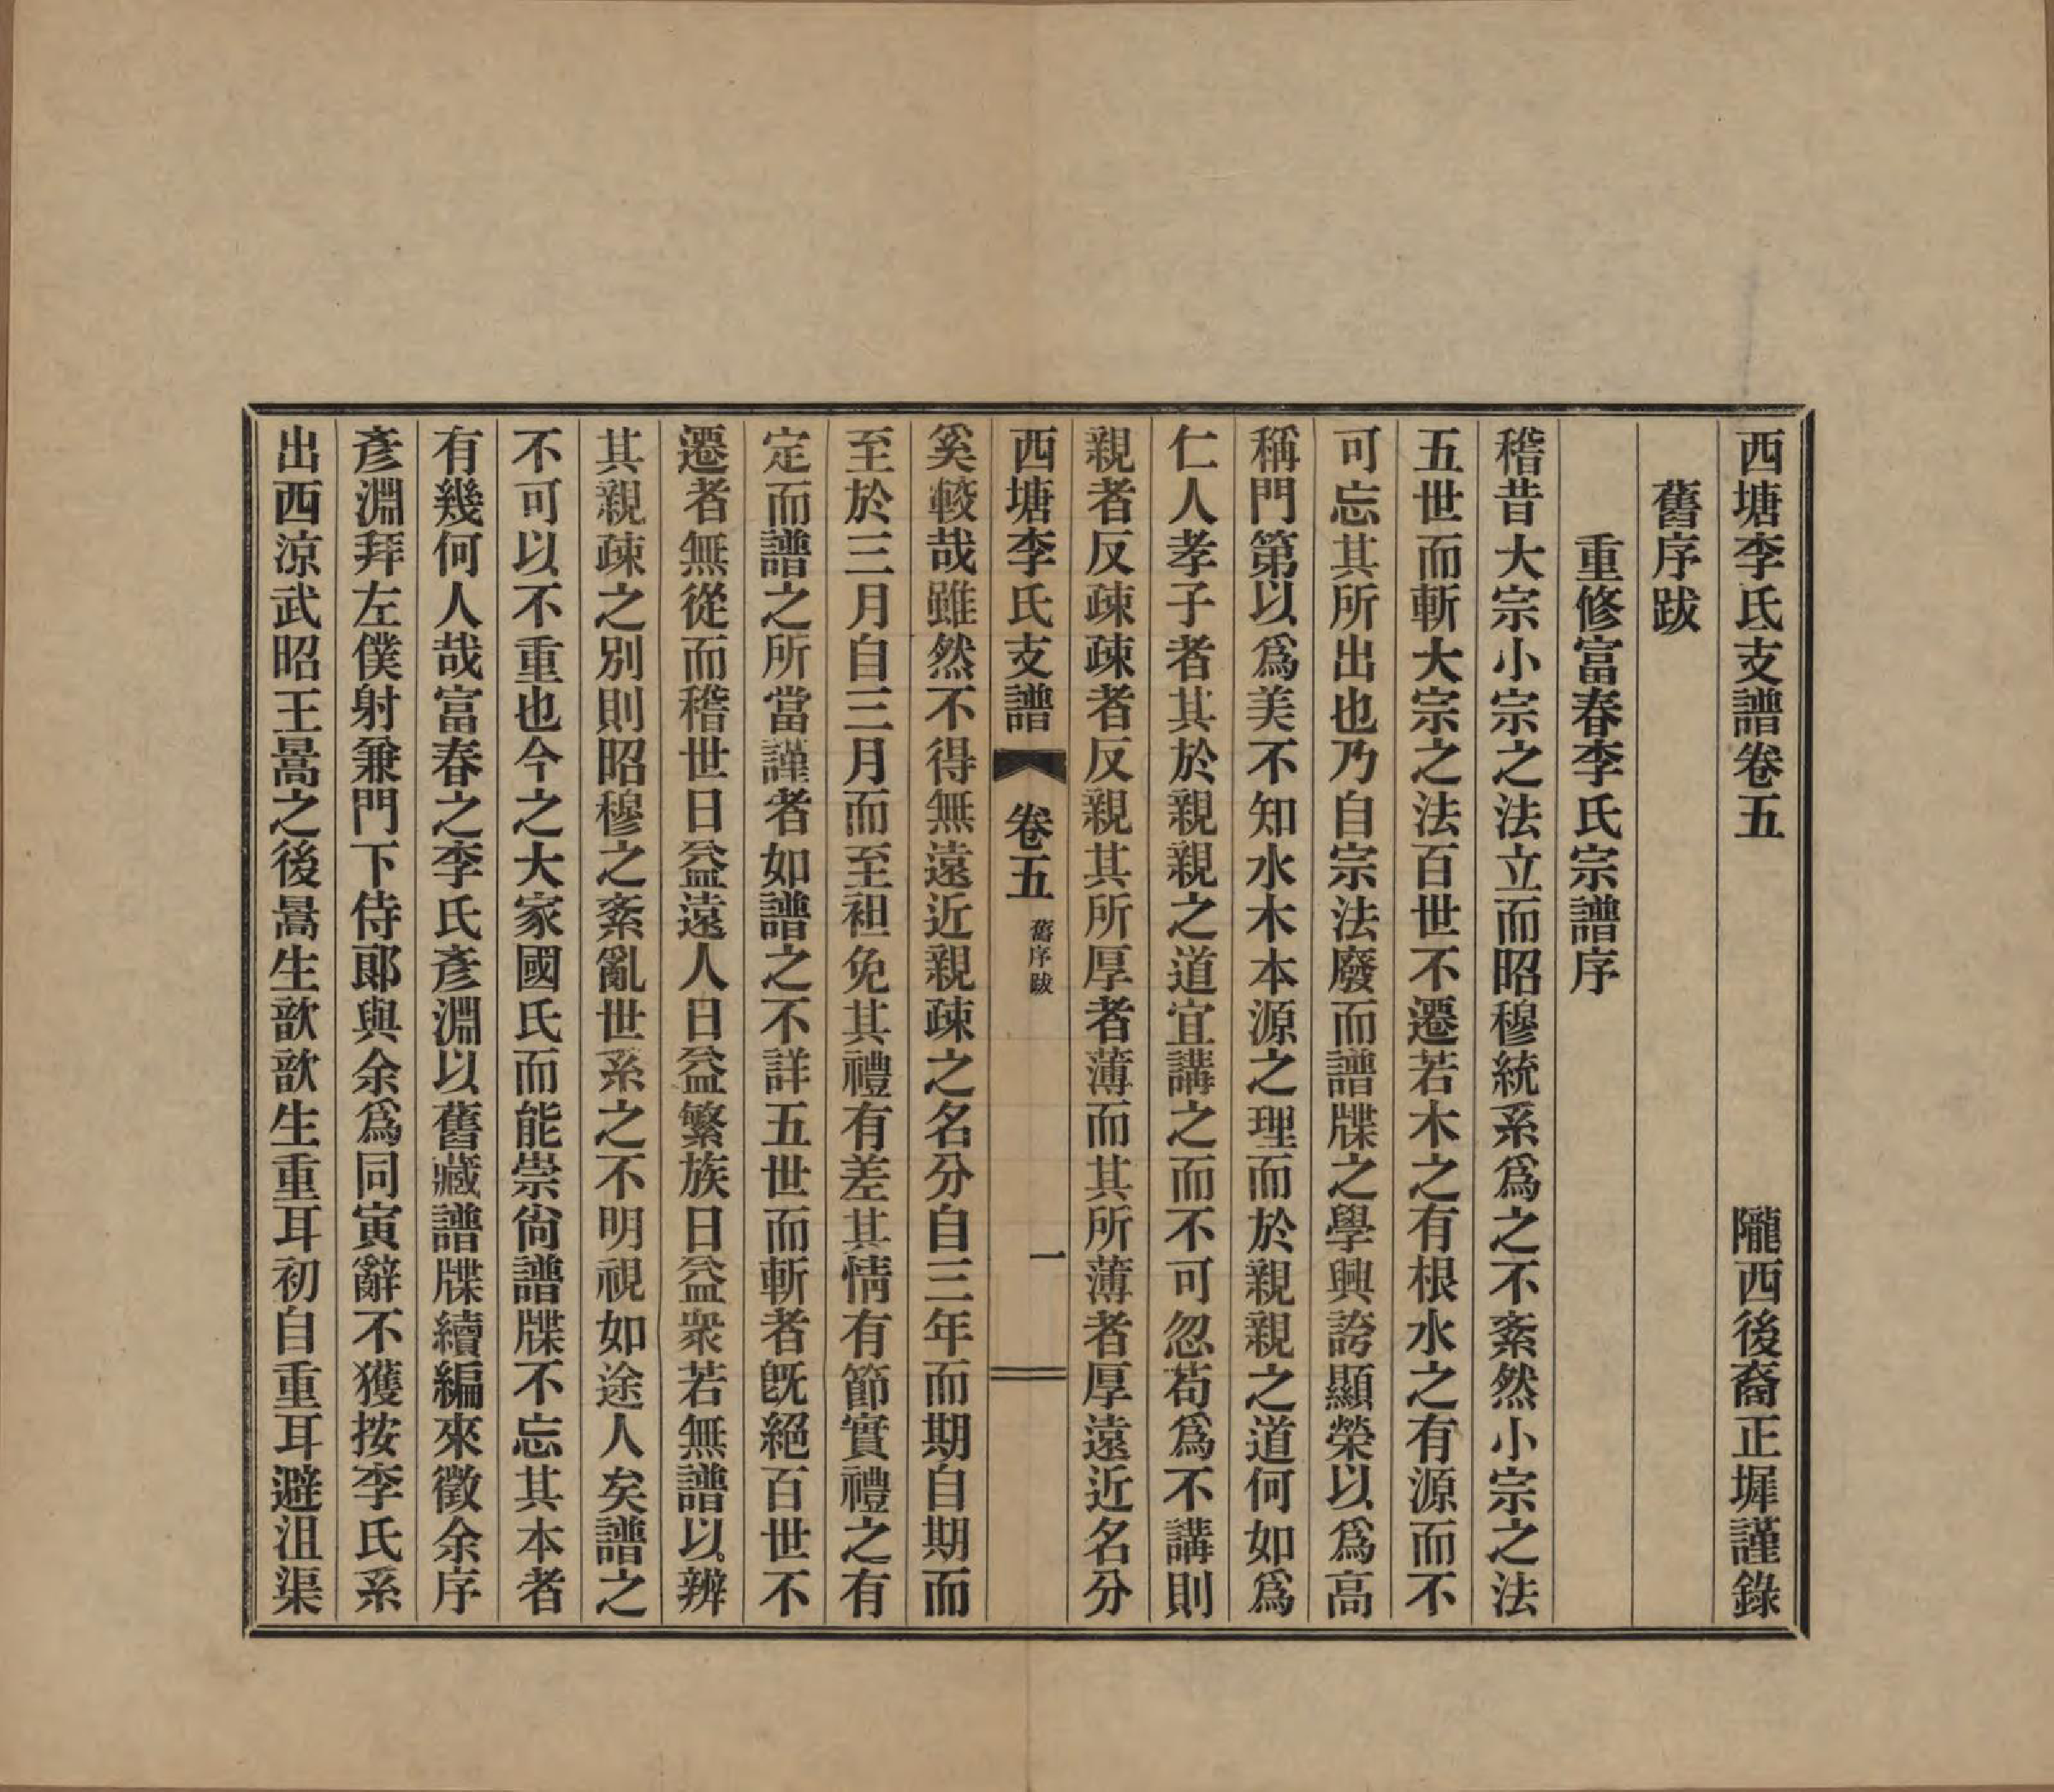 西塘李氏支譜卷五　隴西後裔正墀謹錄
舊序跋
重修富春李氏宗譜序
稽昔大宗小宗之法立而昭穆統系爲之不紊然小宗之法
五世而斬大宗之法百世不遷若木之有根水之有源而不
可忘其所出也乃自宗法廢而譜牒之學興誇顯榮以爲高
稱門第以爲美不知水木本源之理而於親親之道何如爲
仁人孝子者其於親親之道宜講之而不可忽苟爲不講則
親者反疎疎者反親其所厚者薄而其所薄者厚遠近名分
西塘李氏支譜　卷五　舊序跋　一
奚較哉雖然不得無遠近親疎之名分自三年而期自期而
至於三月自三月而至袒免其禮有差其情有節實禮之有
定而譜之所當謹者如譜之不詳五世而斬者旣絕百世不
遷者無從而稽世日益遠人日益繁族日益衆若無譜以辨
其親疎之別則昭穆之紊亂世系之不明視如途人矣譜之
不可以不重也今之大家國氏而能崇尙譜牒不忘其本者
有幾何人哉富春之李氏彥淵以舊藏譜牒續編來徵余序
彥淵拜左僕射兼門下侍郎與余爲同寅辭不獲按李氏系
出西涼武昭王暠之後暠生歆歆生重耳初自重耳避沮渠